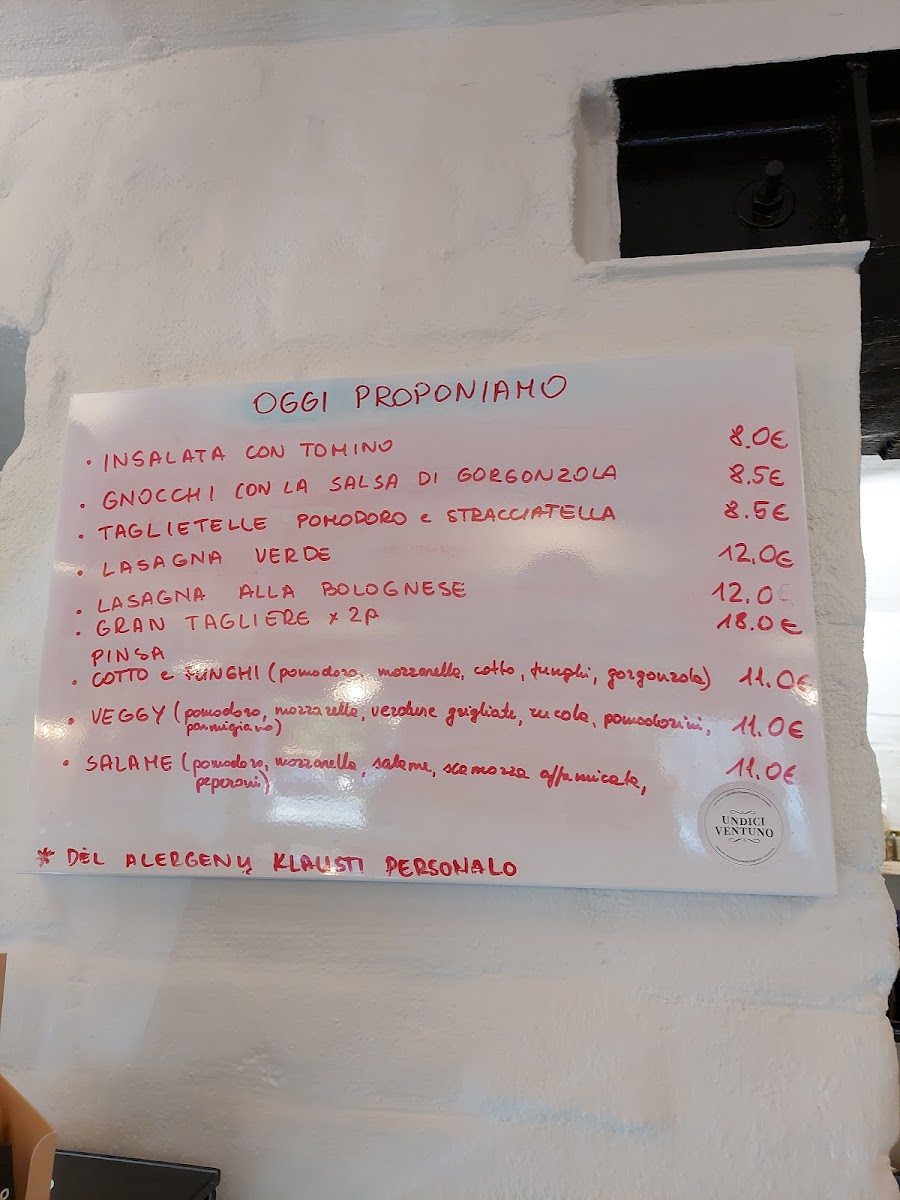 OGGI PROPONIAMO
• INSALATA CON TOMINO 8.0€
• GNOCCHI CON LA SALSA DI GORGONZOLA 8.5€
• TAGLIETELLE POMODORO e STRACCIATELLA 8.5€
• LASAGNA VERDE 12.0€
• LASAGNA ALLA BOLOGNESE 12.0€
• GRAN TAGLIERE x 2P 18.0€
PINSA
• COTTO e FUNGHI (pomodoro, mozzarella, cotto, funghi, gorgonzola) 11.0€
• VEGGY (pomodoro, mozzarella, verdure grigliate, rucola, pomodorini, 11.0€
parmigiano)
• SALAME (pomodoro, mozzarella, salame, scamorza affumicata, 11.0€
peperoni)
UNDICI
VENTUNO
* DĖL ALERGENŲ KLAUSTI PERSONALO